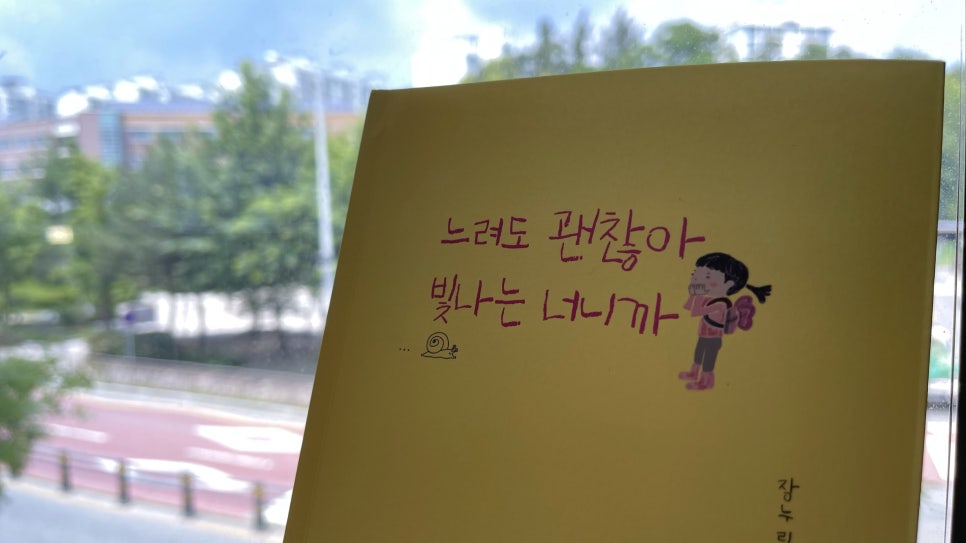 느려도 괜찮아
빛나는 너니까
...
장누리